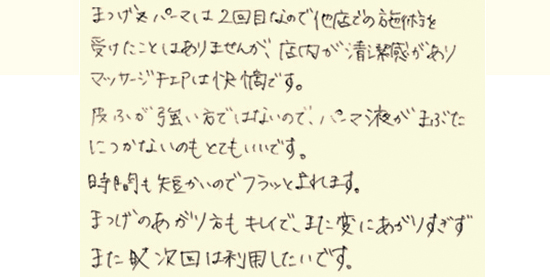 まつげパーマは2回目なので他店での施術を
受けたことはありませんが、店内が清潔感があり
マッサージチェアは快適です。
皮ふが強い方ではないので、パーマ液がまぶた
につかないのもとてもいいです。
時間も短かいのでフラッと来れます。
まつげのあがり方もキレイで、また変にあがりすぎず
また 次回は利用したいです。